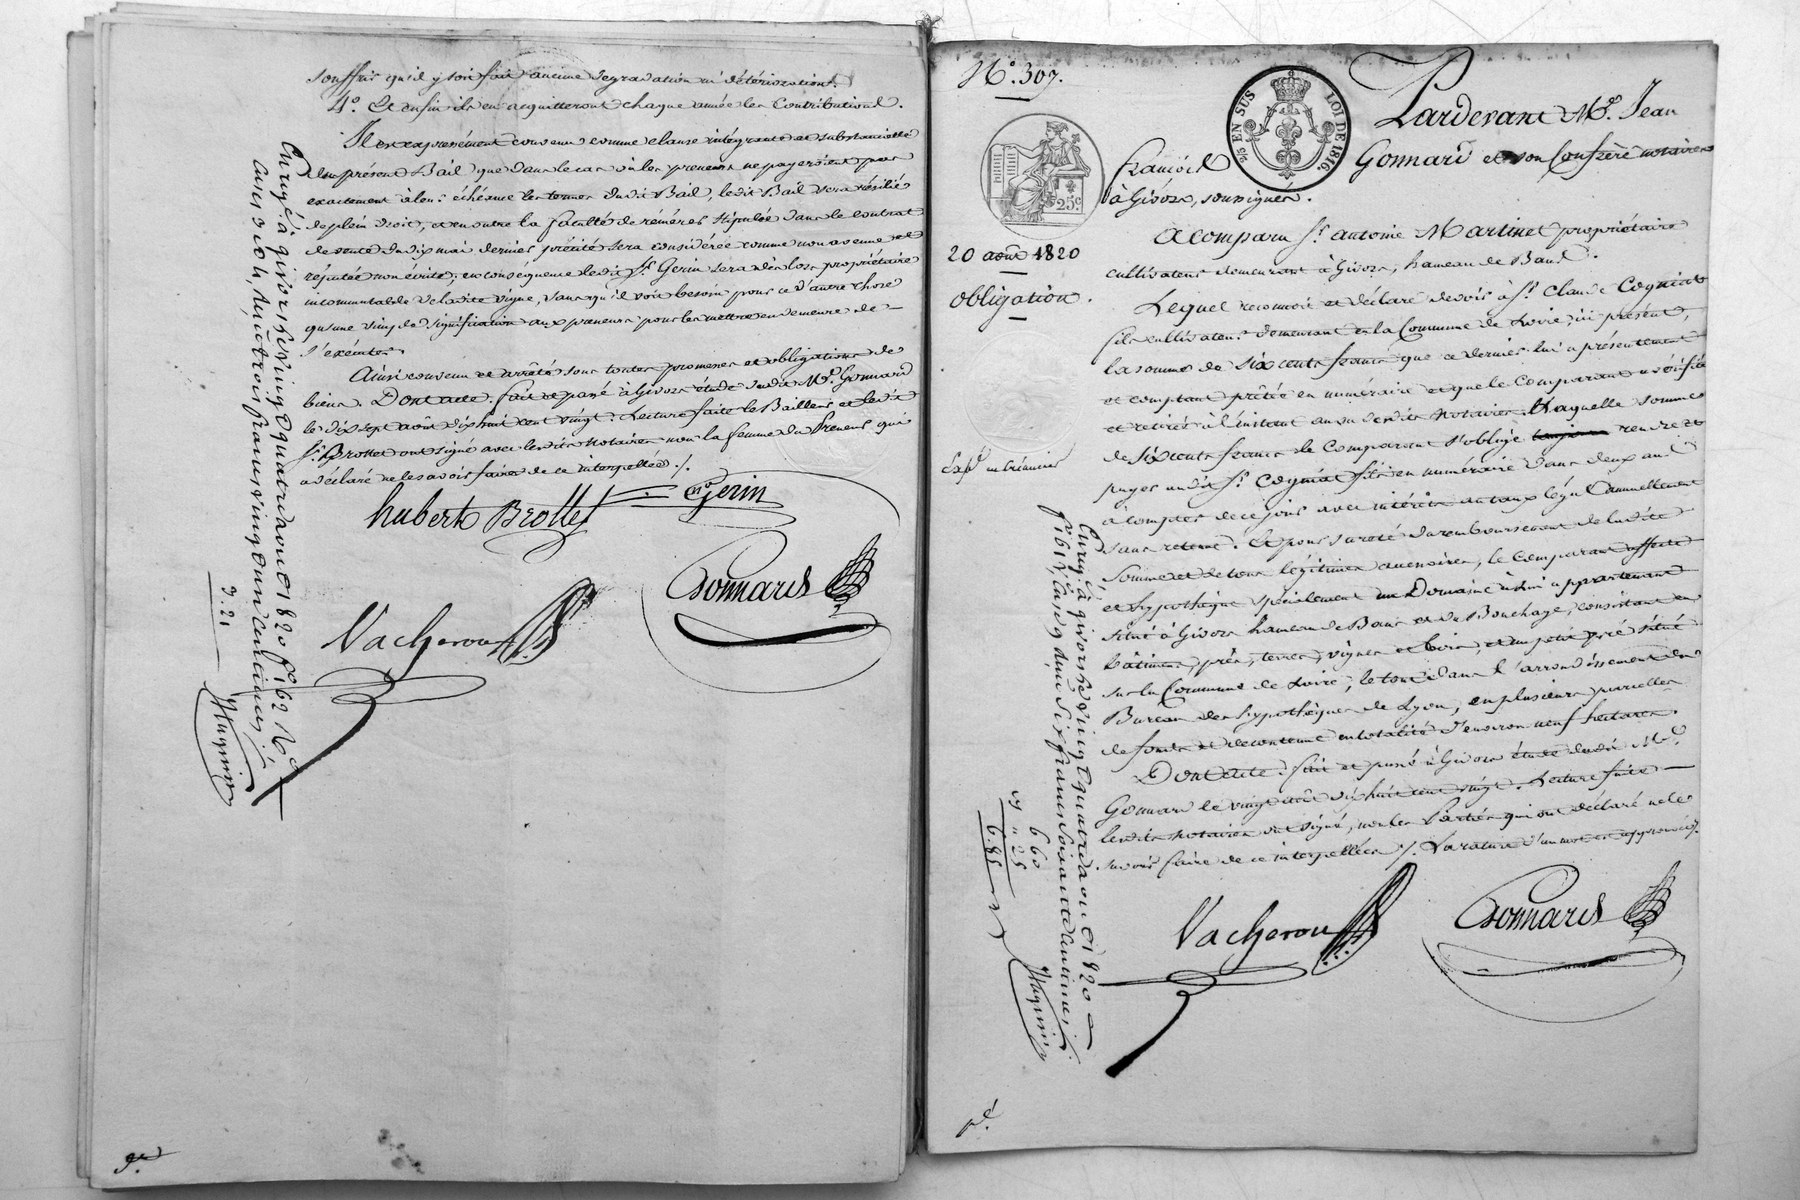 souffrir qu'il y soit fait aucune degradation ni déteriorations.
4.° Et enfin ils en acquitteront chaque année les Contributions.
Il est expressément convenu comme clause intégrante et substancielle
du présent Bail que dans le cas où les preneurs ne payeroient pas
exactement à leur échéance les termes dudit Bail, ledit Bail sera résilié
de plein droit, et en outre la faculté de réméré stipulée dans le contrat
de vente du dix mai dernier précité sera considérée comme non avenue et
réputée non écrite; en conséquence ledit Sr. Gerin sera dès lors propriétaire
incommutable de ladite vigne, sans qu'il soit besoin pour ce d'autre chose
qu'une simple signification aux preneurs pour les mettre en demeure de
s'exécuter.
Ainsi convenu et arrêté sous toutes promesses et obligations de
biens. Dont acte. fait et passé à Givors étude dudit Me. Gonnard
le dix sept août dix huit cent vingt. Lecture faite le Bailleur et ledit
Sr. Brottet ont signé avec lesdits Notaires non la femme du Preneur qui
a déclaré ne les avoir faire de ce interpellée ./.
hubert Brottet Gerin
Gonnard
Vacheron
Enreg.é à givors le vingt quatre aout 1820 f.° 162 R.°
Cases 3 et 4, reçu trois francs vingt un centimes.
3.21
N.° 307.
25 EN SUS LOI DE 1816
25c
Pardevant Me. Jean
François Gonnard et son Confrère notaires
à Givors, soussignés.
20 août 1820
Obligation.
A comparu Sr. antoine Martinet propriétaire
cultivateur demeurant à Givors, hameau de Bans.
Lequel reconnoit et déclare devoir à Sr. Claude Cognat
fils cultivateur demeurant en la Commune de Loire, ici présent,
la somme de six cents francs que ce dernier lui a présentement
et comptant prêtée en numéraire et que le Comparant a vérifiée
et retirée à l'instant au vu desdits Notaires. Laquelle somme
de six cents francs le Comparant s'oblige rendre et
Exp.é au Créancier
payer audit Sr. Cognat fils en numéraire dans deux ans
à compter de ce jour avec intérêts au taux légal annuellement
sans retenue. Et pour sureté du remboursement de ladite
somme et de tous légitimes accessoires, le Comparant affecte
et hypothèque spécialement un Domaine à lui appartenant
situé à Givors hameau de Bans et du Bouchage, consistant en
bâtimens, prés, terres, vignes et bois, et un petit pré situé
sur la Commune de Loire, le tout dans l'arrondissement du
Bureau des hypothèques de Lyon, en plusieurs parcelles
de fonds et de contenue en totalité d'environ neuf hectares.
Dont acte. fait et passé à Givors étude dudit Me.
Gonnard le vingt août dix huit cent vingt. Lecture faite
lesdits notaires ont signé, non les Parties qui ont déclaré ne le
savoir faire de ce interpellées ./. La rature d'un mot est approuvée.
Vacheron Gonnard
Enreg. à givors le vingt quatre aout 1820
f.° 161 V.° Case 9 reçu six francs soixante centimes
6 60
6.85